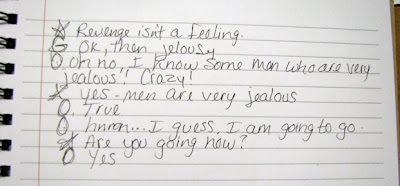 ☆ Revenge isn't a feeling.
G Ok, then jelousy
O oh no, I know some men who are very
jealous!! Crazy!
☆ yes - men are very jealous
O. True
O hmm... I guess. I am going to go.
☆ Are you going now?
O Yes